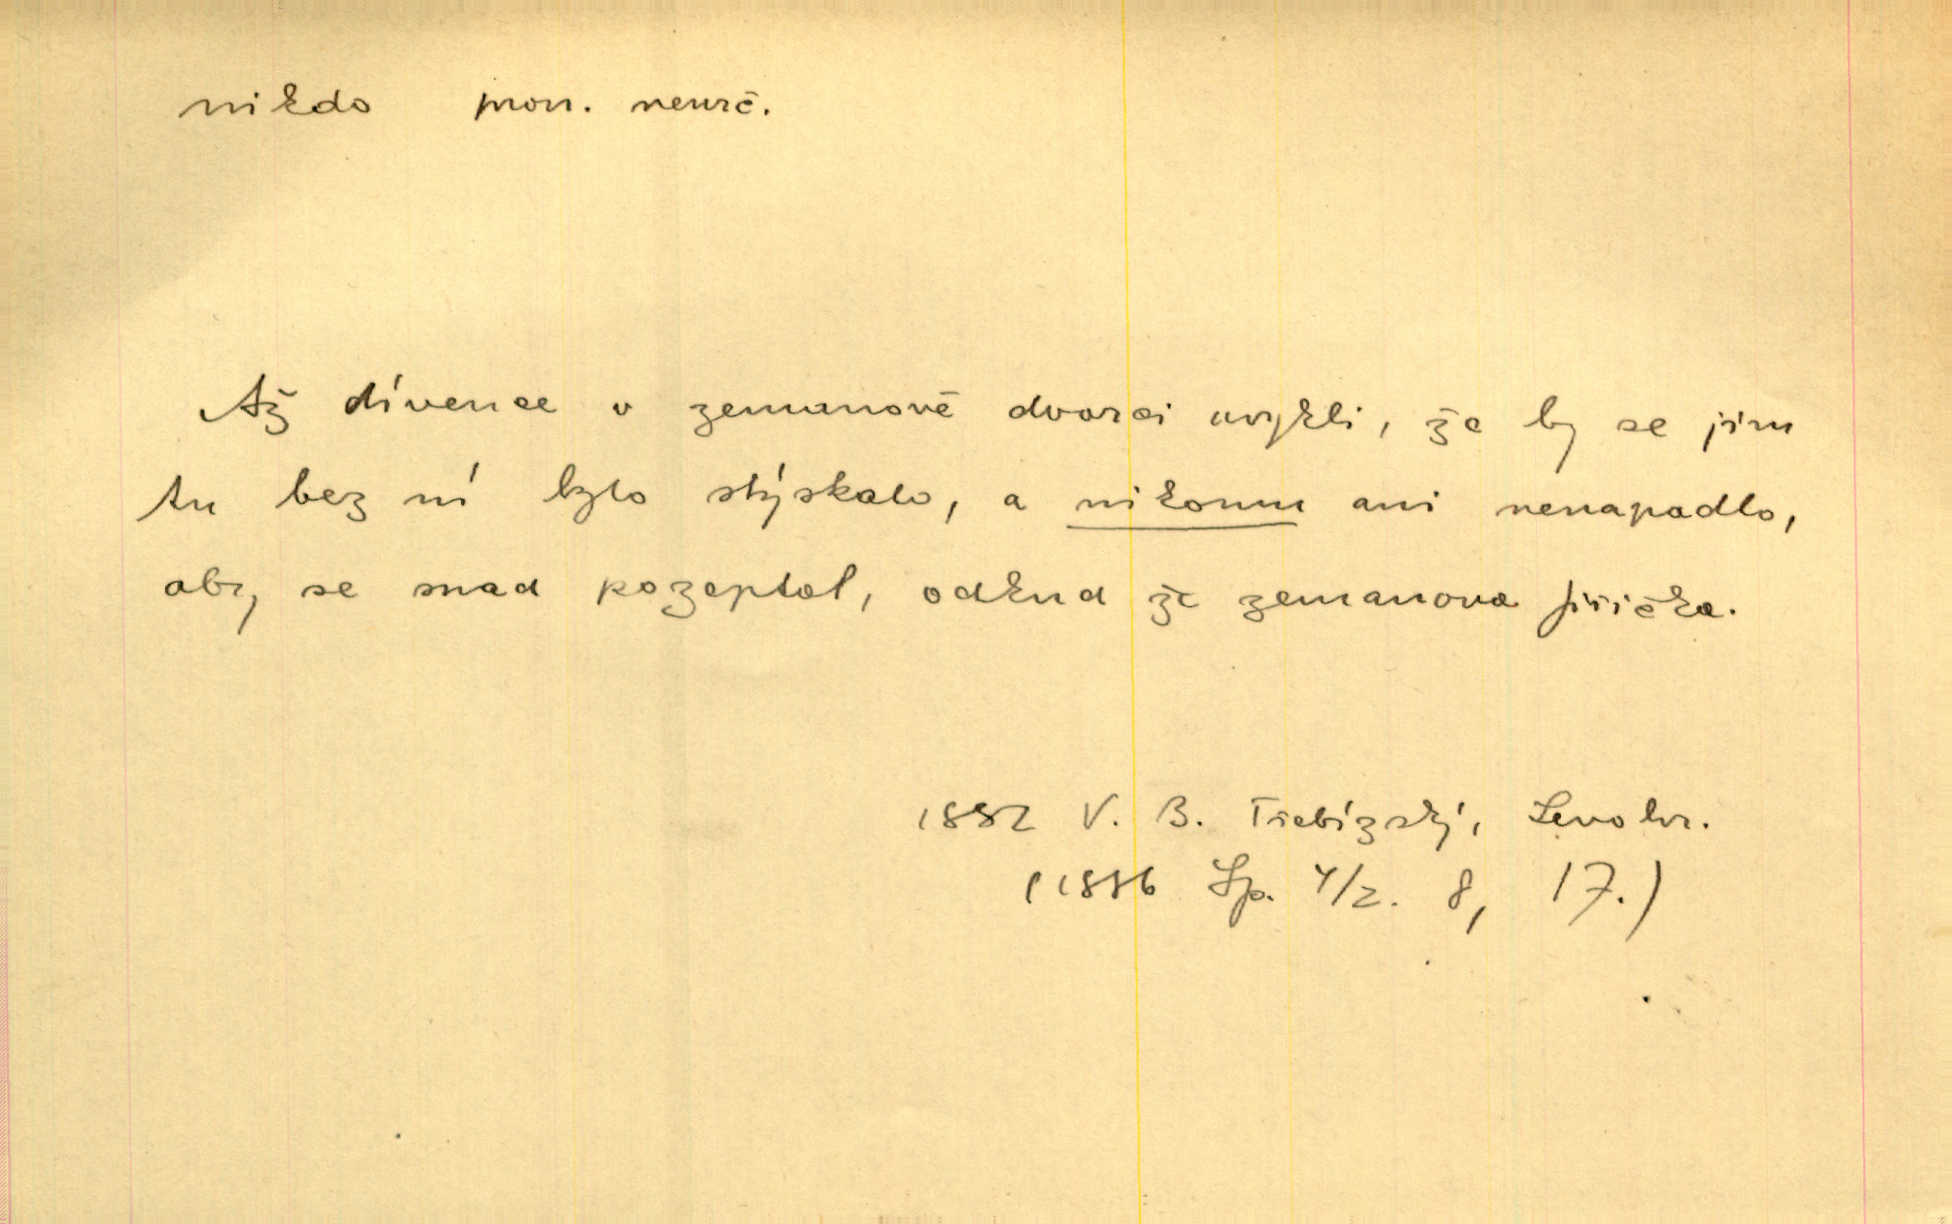 nikdo pron. neurč.
Až dívence v zemanově dvorci uvykli, že by se jim
tu bez ní bylo stýskalo, a nikomu ani nenapadlo,
aby se snad pozeptal, odkud že zemanova Jiřička.
1882 V. B. Třebízský, Levohr.
(1886 Sp. 4/2. 8, 17.)